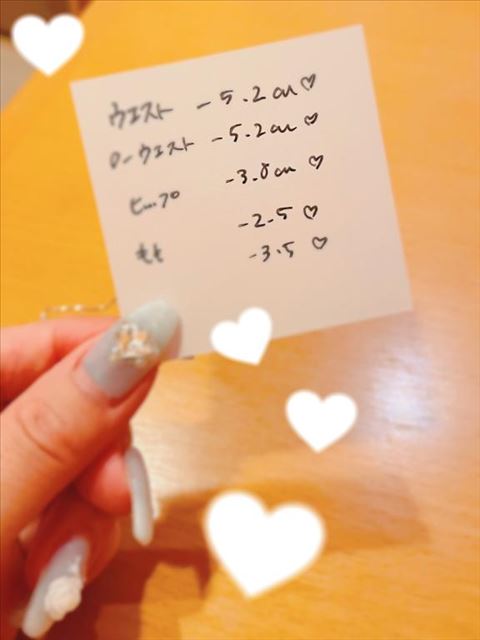 ウエスト -5.2cm♡
ローウエスト -5.2cm♡
ヒップ -3.8cm♡
-2.5♡
もも -3.5♡